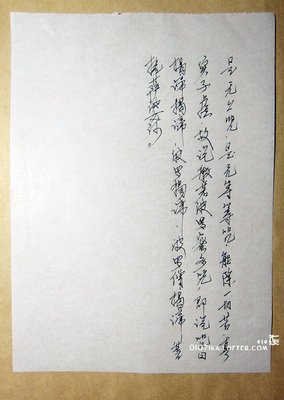 是无上咒.是无等等咒.能除一切苦.真
实不虚.故说般若波罗蜜多咒,即说咒曰
揭谛揭谛.波罗揭谛.波罗僧揭谛.菩
提萨婆诃.
010
OIOZIKA.LOFTER.COM